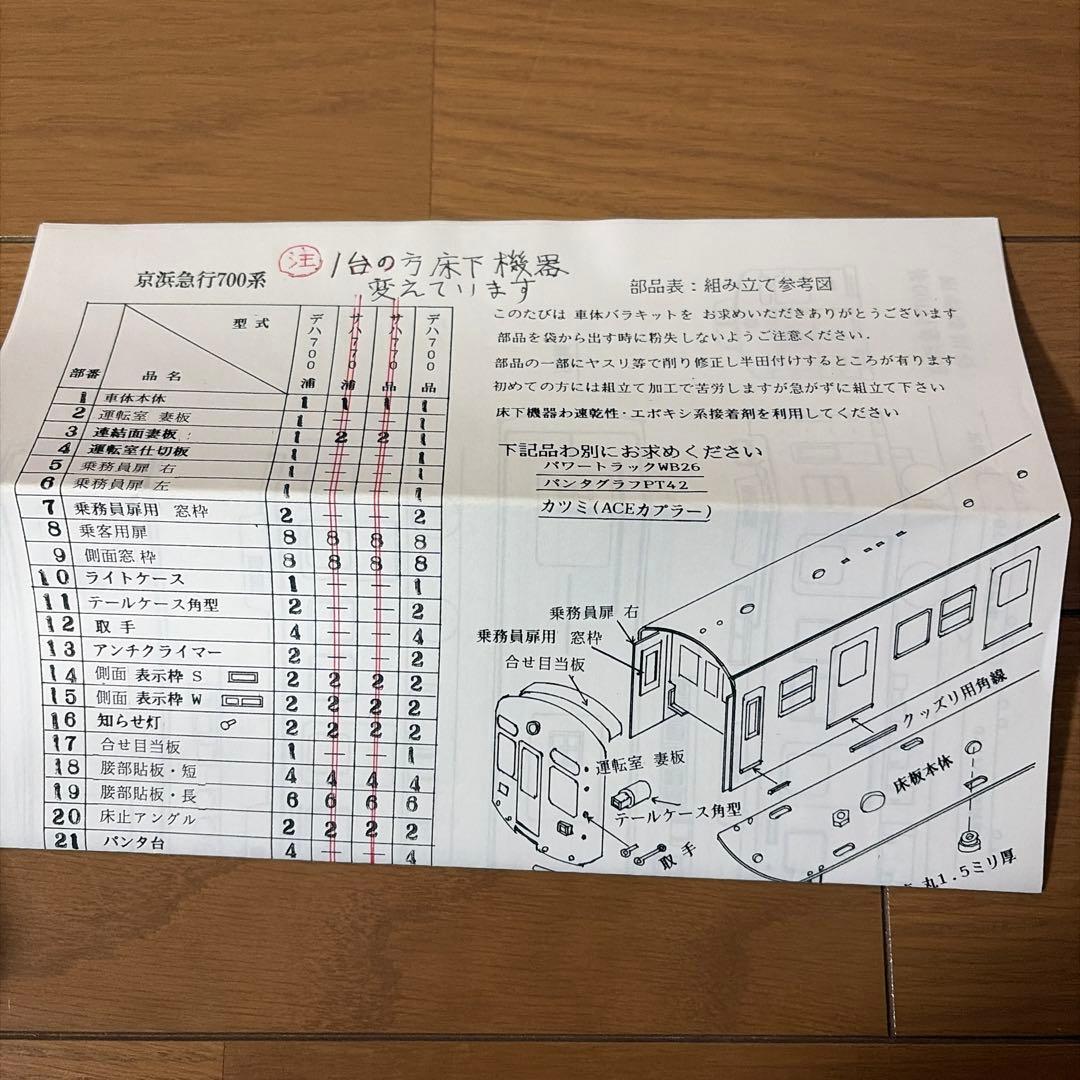 京浜急行700系
注 1台の方床下機器
変えています
部品表：組み立て参考図
型式
部番
品名
デハ700 浦
サハ770 浦
サハ770 品
デハ700 品
1 車体本体 1 1 1 1
2 運転室 妻板 1 — — 1
3 連結面妻板 1 2 2 1
4 運転室仕切板 1 — — 1
5 乗務員扉 右 1 — — 1
6 乗務員扉 左 1 — — 1
7 乗務員扉用 窓枠 2 — — 2
8 乗客用扉 8 8 8 8
9 側面窓枠 8 8 8 8
10 ライトケース 1 — — 1
11 テールケース角型 2 — — 2
12 取手 4 — — 4
13 アンチクライマー 2 — — 2
14 側面 表示枠 S 2 2 2 2
15 側面 表示枠 W 2 2 2 2
16 知らせ灯 2 2 2 2
17 合せ目当板 1 — — 1
18 腰部貼板・短 4 4 4 4
19 腰部貼板・長 6 6 6 6
20 床止アングル 2 2 2 2
21 パンタ台 4 — — 4
このたびは 車体バラキットを お求めいただきありがとうございます
部品を袋から出す時に粉失しないようご注意ください．
部品の一部にヤスリ等で削り修正し半田付けするところが有ります
初めての方には組立て加工で苦労しますが急がずに組立て下さい
床下機器わ速乾性・エポキシ系接着剤を利用してください
下記品わ別にお求めください
パワートラックWB26
パンタグラフPT42
カツミ(ACEカプラー)
乗務員扉 右
乗務員扉用 窓枠
合せ目当板
運転室 妻板
テールケース角型
取手
クッズリ用角線
床板本体
丸1.5ミリ厚